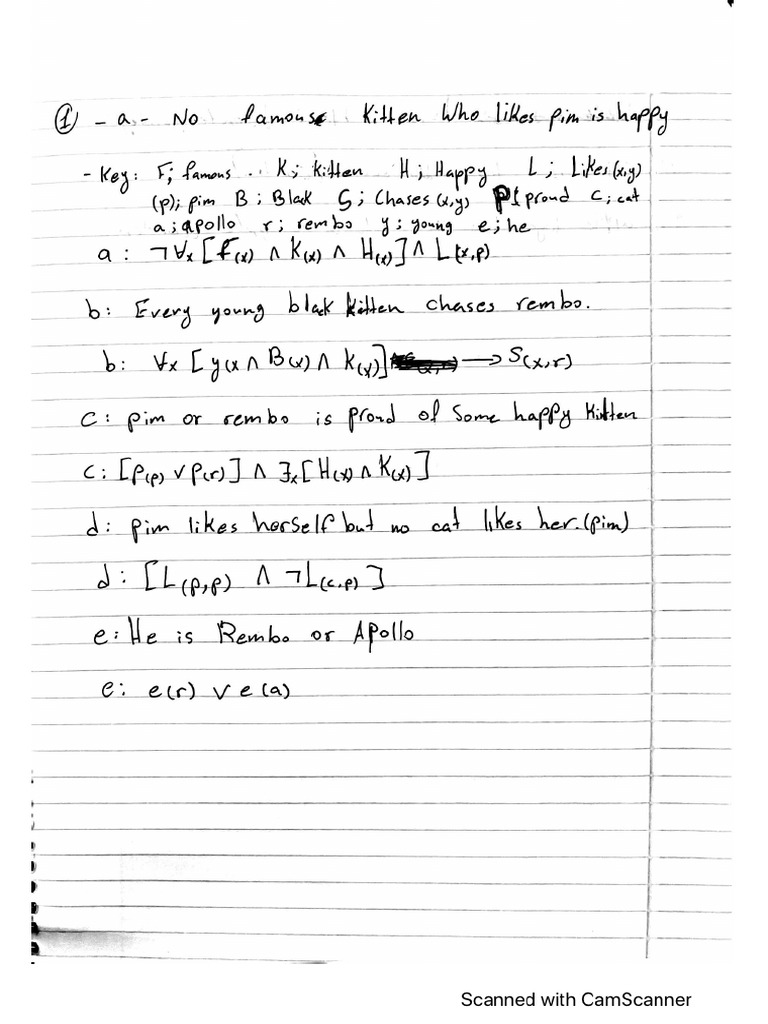 ① - a - No famous Kitten Who likes pim is happy
- Key: F; famous . K; Kitten H; Happy L; Likes(x,y)
(p); pim B; Black S; Chases(x,y) P; proud c; cat
a; apollo r; rembo y; young e; he
a: ¬∀x [F(x) ∧ K(x) ∧ H(x)] ∧ L(x,p)
b: Every young black Kitten chases rembo.
b: ∀x [y(x ∧ B(x) ∧ K(x)] → S(x,r)
C: pim or rembo is proud of Some happy Kitten
C: [P(p) ∨ P(r)] ∧ ∃x [H(x) ∧ K(x)]
d: pim likes herself but no cat likes her. (pim)
d: [L(p,p) ∧ ¬L(c,p)]
e: He is Rembo or Apollo
e: e(r) ∨ e(a)
Scanned with CamScanner